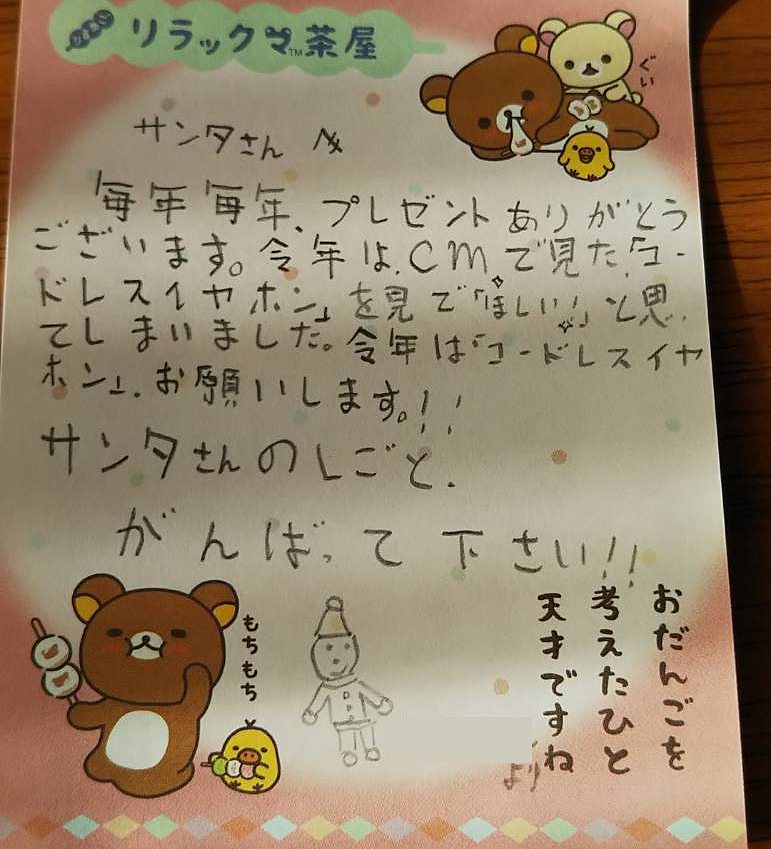 リラックマ™茶屋
ぐい
サンタさんへ
毎年毎年、プレゼントありがとう
ございます。今年は、CMで見た「コー
ドレスイヤホン」を見て「ほしい!」と思っ
てしまいました。今年は「コードレスイヤ
ホン」、お願いします。!!
サンタさんのしごと、
がんばって下さい!!
もちもち
おだんごを
考えたひと
天才ですね
より